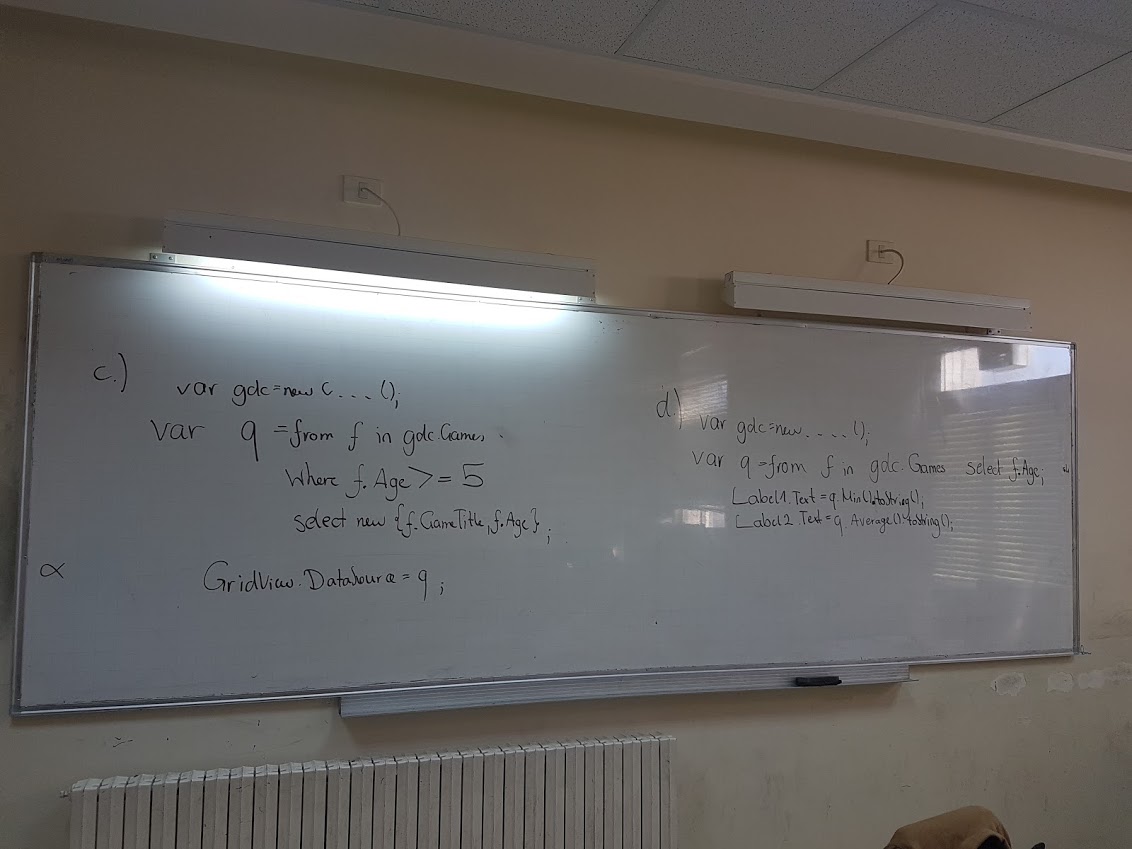 c.)
var gdc=new C....();
var q =from f in gdc.Games
Where f.Age >= 5
select new {f.GameTitle, f.Age};
GridView.DataSource = q;
α
d.)
var gdc=new.....();
var q =from f in gdc.Games select f.Age;
Label1.Text = q.Min().toString();
Label2.Text = q.Average().toString();